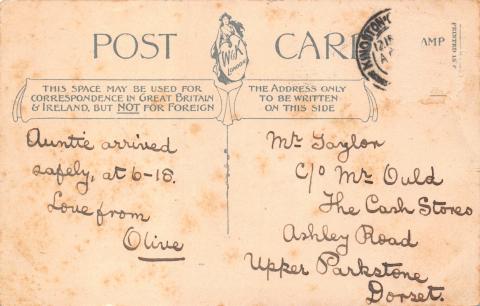 POST CARD
W&K
LONDON
AMP
PRINTED IN
THIS SPACE MAY BE USED FOR
CORRESPONDENCE IN GREAT BRITAIN
& IRELAND, BUT NOT FOR FOREIGN
THE ADDRESS ONLY
TO BE WRITTEN
ON THIS SIDE
Auntie arrived
safely, at 6-18.
Love from
Olive
Mr Taylor
C/o Mr Ould
The Cash Stores
Ashley Road
Upper Parkstone
Dorset.